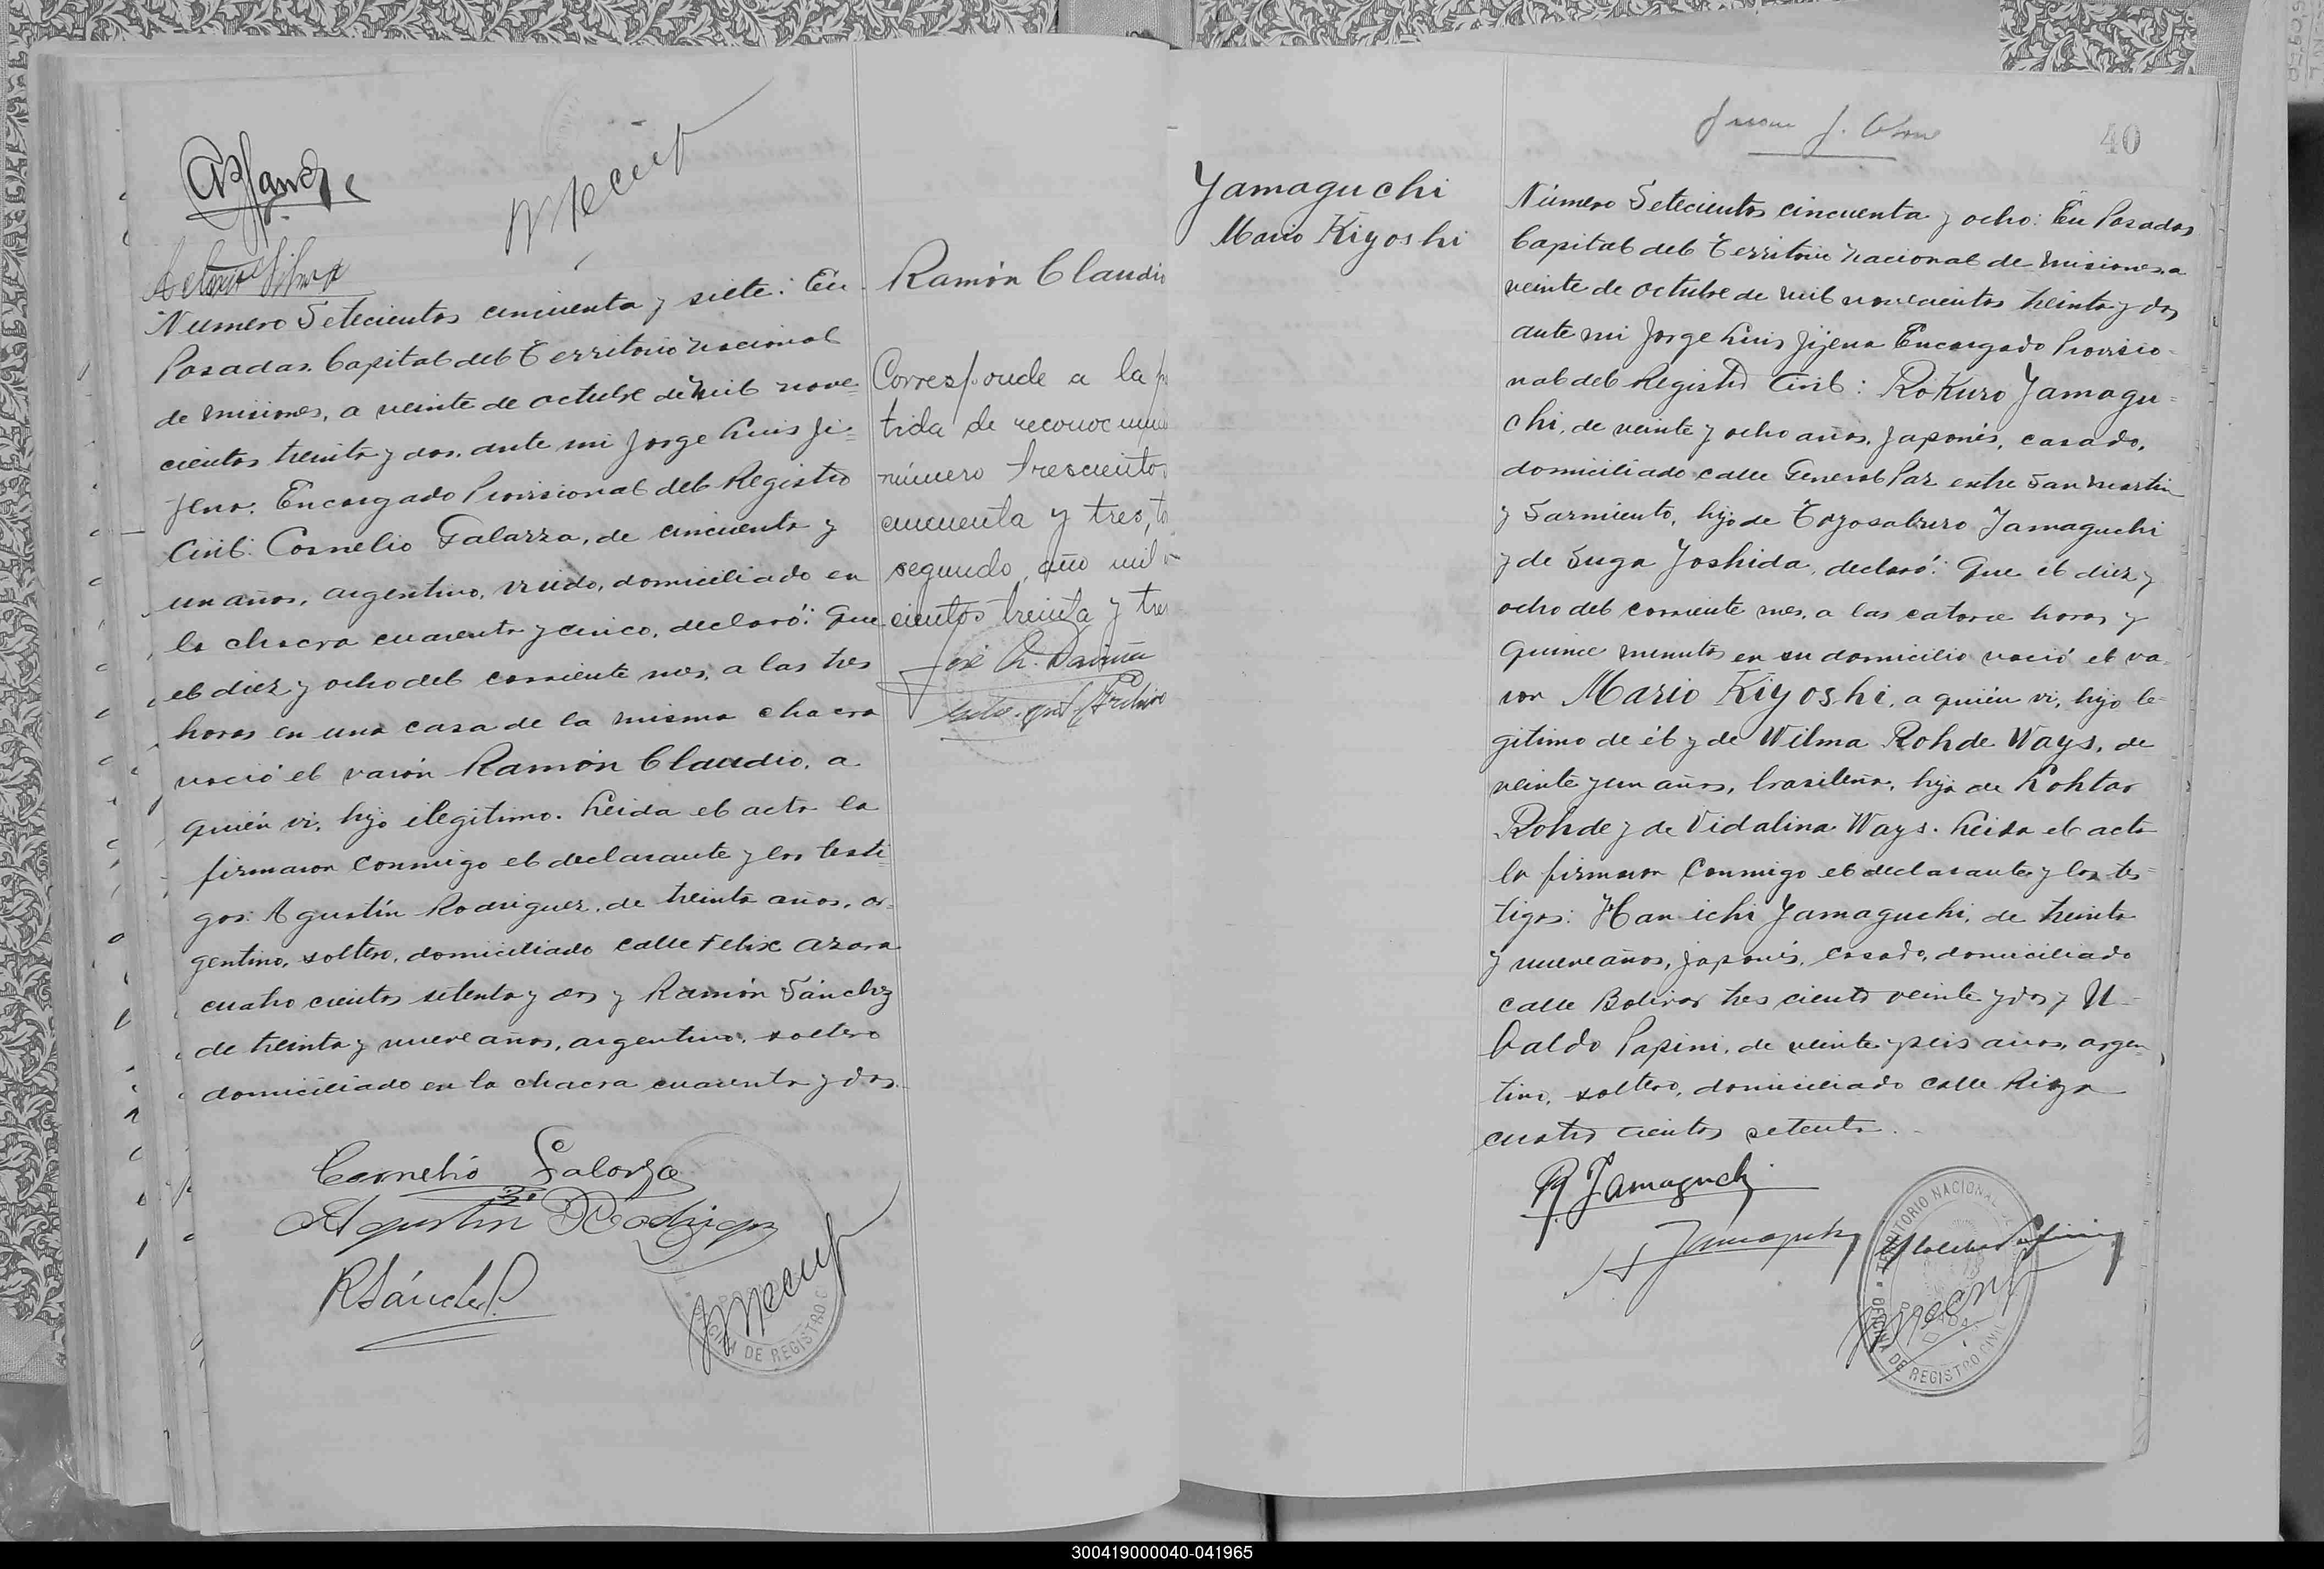 Número Setecientos cincuenta y siete: En
Posadas Capital del Territorio Nacional
de Misiones, a veinte de octubre de mil nove=
cientos treinta y dos, ante mi Jorge Luis Ji=
jena: Encargado Provisional del Registro
Civil: Cornelio Galarza, de cincuenta y
un años, argentino, viudo, domiciliado en
la chacra cuarenta y cinco, declaró: Que
el diez y ocho del corriente mes, a las tres
horas en una casa de la misma chacra
nació el varón Ramón Claudio, a
quién vi, hijo ilegitimo. Leida el acta la
firmaron conmigo el declarante y los testi=
gos: Agustín Rodriguez, de treinta años, ar=
gentino, soltero, domiciliado calle Felix Azara
cuatro cientos setenta y dos y Ramón Sánchez
de treinta y nueve años, argentino, soltero
domiciliado en la chacra cuarenta y dos.
Cornelio Galarza
Agustin Rodriguez
R Sánchez
DE REGISTRO C
Ramón Claudio
Corresponde a la
tida de
número trescientos
cincuenta y tres,
segundo, año mil
cientos treinta y tres
José
40
Yamaguchi
Mario Kiyoshi
Número Setecientos cincuenta y ocho: En Posadas
Capital del Territorio Nacional de Misiones a
veinte de octubre de mil novecientos treinta y dos
ante mi Jorge Luis Jijena Encargado Provisio=
nal del Registro Civil: Rokuro Yamagu=
chi, de veinte y ocho años, Japonés, casado,
domiciliado calle General Paz entre San Martin
y Sarmiento, hijo de Toyosaburo Yamaguchi
y de Suga Yoshida, declaró: Que el diez y
ocho del corriente mes, a las catorce horas y
quince minutos en su domicilio nació el va=
ron Mario Kiyoshi, a quién vi, hijo le=
gitimo de él y de Wilma Rohde Ways, de
veinte y un años, brasileña, hija de Lohtar
Rohde y de Vidalina Ways. Leida el acta
la firmaron conmigo el declarante y los tes=
tigos: Han ichi Yamaguchi, de treinta
y nueve años, japonés, casado, domiciliado
calle Bolivar tres ciento veinte y dos y U=
baldo Papini, de veinte y seis años, argen=
tino, soltero, domiciliado calle Rioja
cuatro cientos setenta.
R. Yamaguchi
H Yamaguchi
TERRITORIO NACIONAL DE
POSADAS
OFICINA DE REGISTRO CIVIL
300419000040-041965